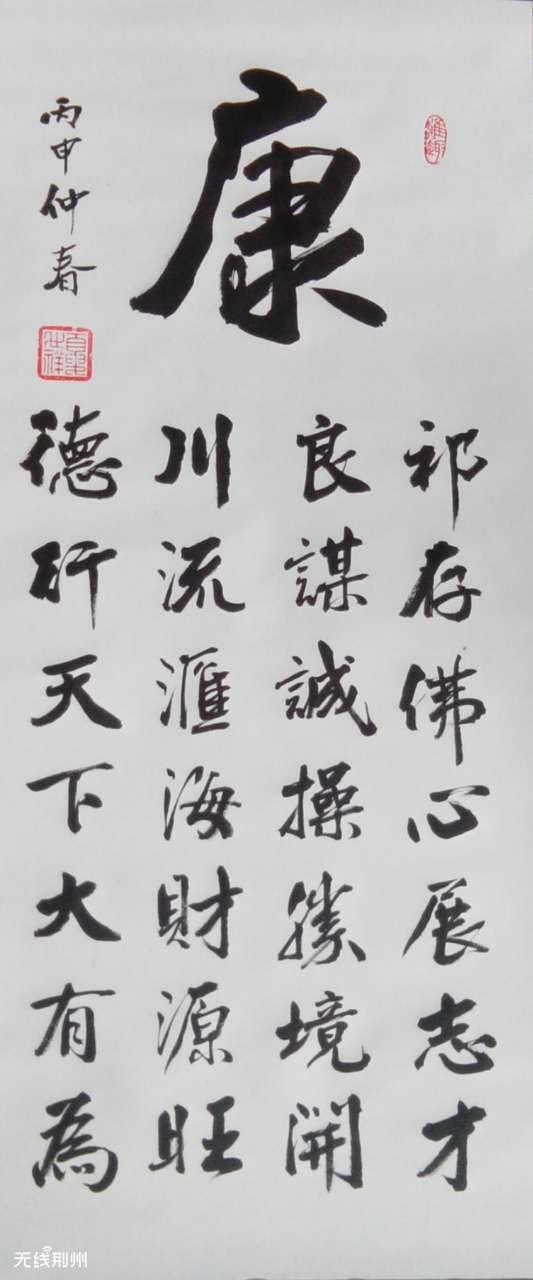 康
祁存佛心展志才
良謀誠操勝境開
川流滙海財源旺
德衍天下大有為
丙申仲春
雅趣
无线荆州